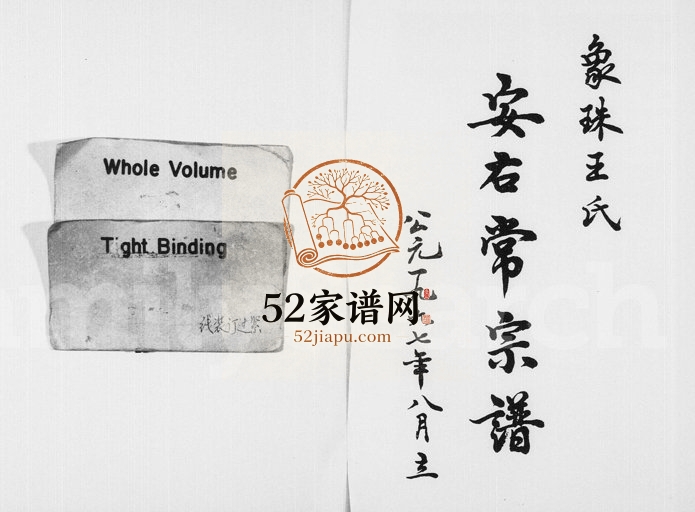 象珠王氏
安右常宗譜
公元一九 七年八月立
Whole Volume
Tight Binding
线装订过紧
52家谱网
52jiapu.com